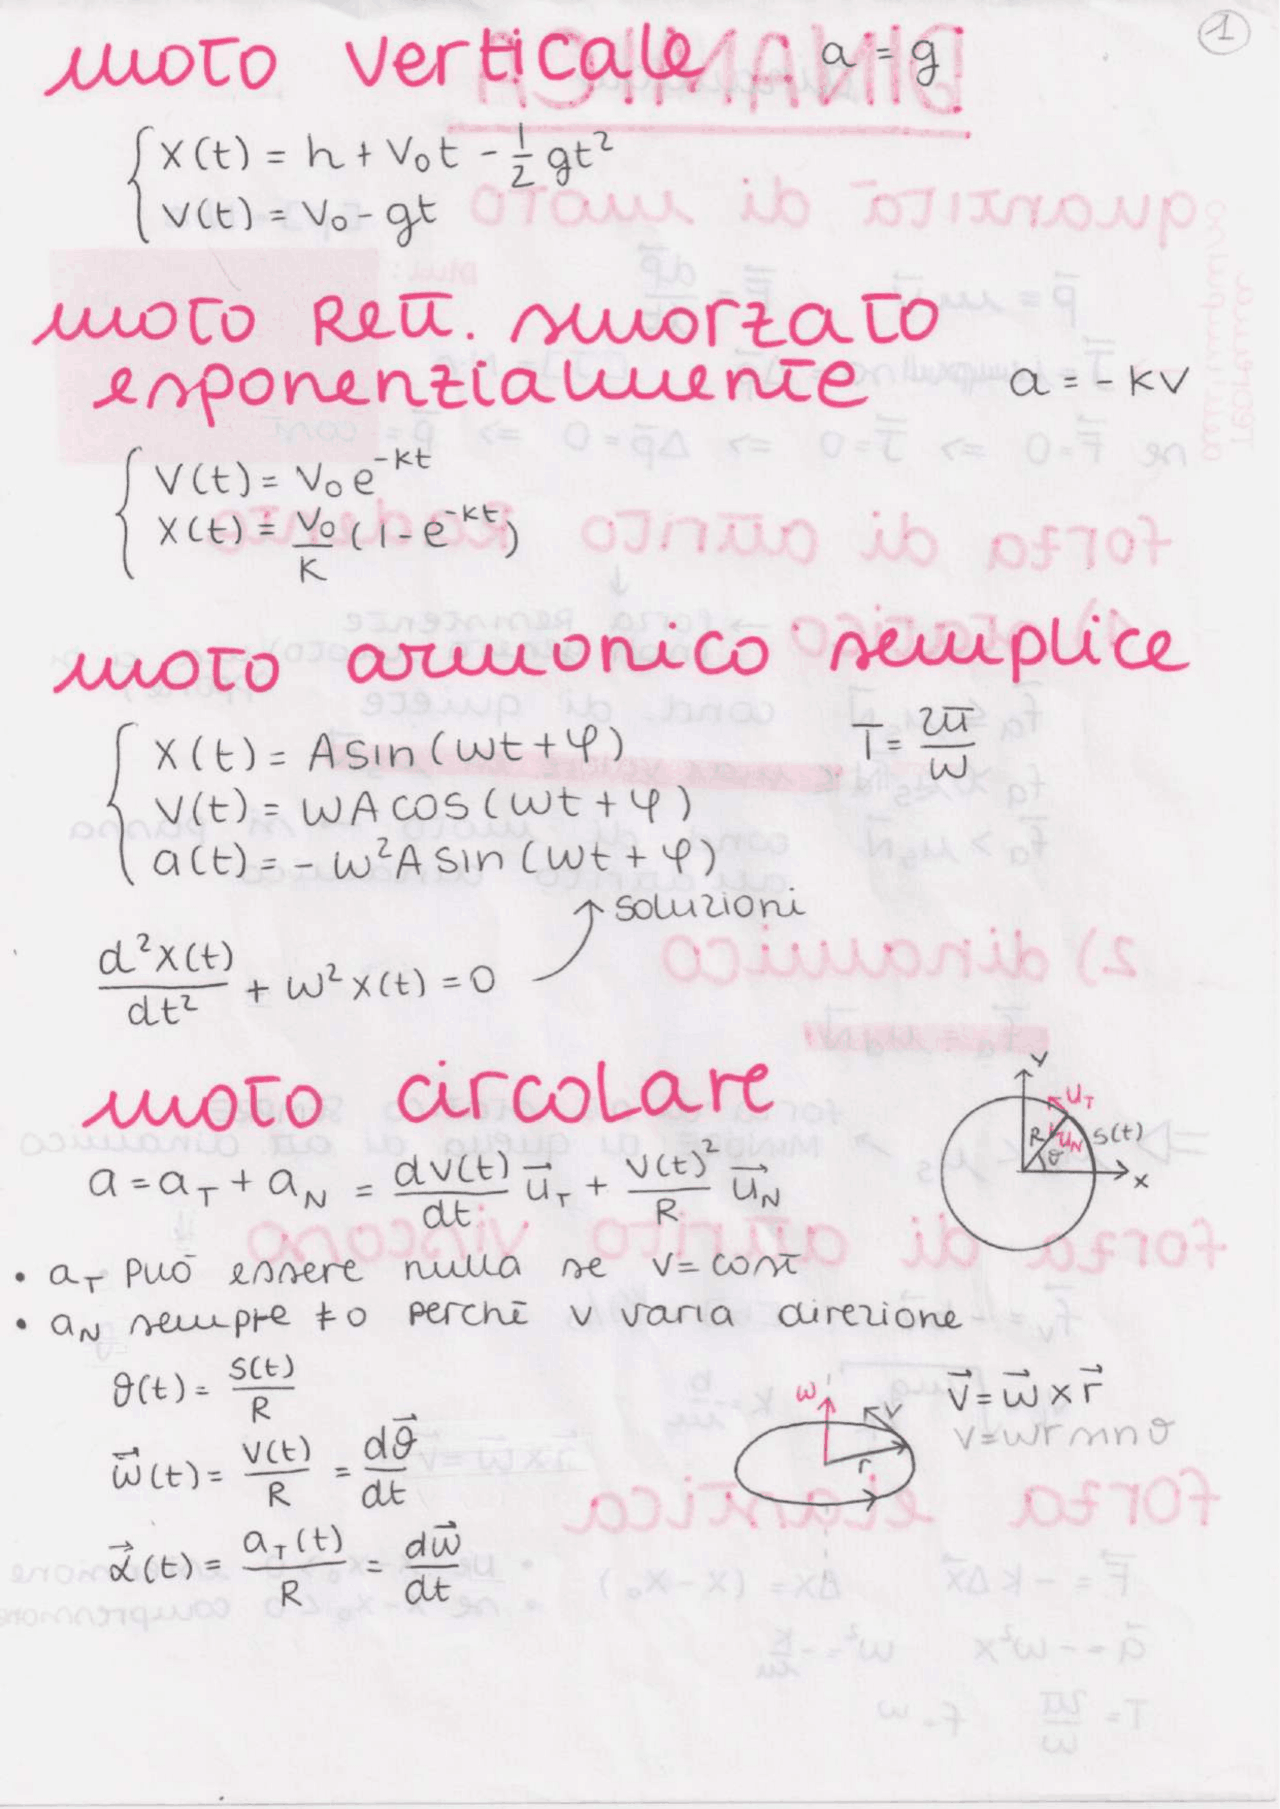 1
moto verticale a = g
x(t) = h + v₀t - 1/2 gt²
v(t) = v₀ - gt
moto rett. smorzato
esponenzialmente a = - kv
v(t) = v₀e^-kt
x(t) = v₀/k (1 - e^-kt)
moto armonico semplice
x(t) = A sin (ωt + φ) T = 2π/ω
v(t) = ωA cos (ωt + φ)
a(t) = - ω²A sin (ωt + φ)
soluzioni
d²x(t)/dt² + ω²x(t) = 0
moto circolare
y
u_T
R u_N s(t)
θ
x
a = a_T + a_N = dv(t)/dt u⃗_T + v(t)²/R u⃗_N
• a_T può essere nulla se v = cost
• a_N sempre ≠ 0 perché v varia direzione
ϑ(t) = s(t)/R
ω v r
v⃗ = ω⃗ x r⃗
v = ωr sinθ
ω⃗(t) = v(t)/R = dϑ⃗/dt
α⃗(t) = a_T(t)/R = dω⃗/dt